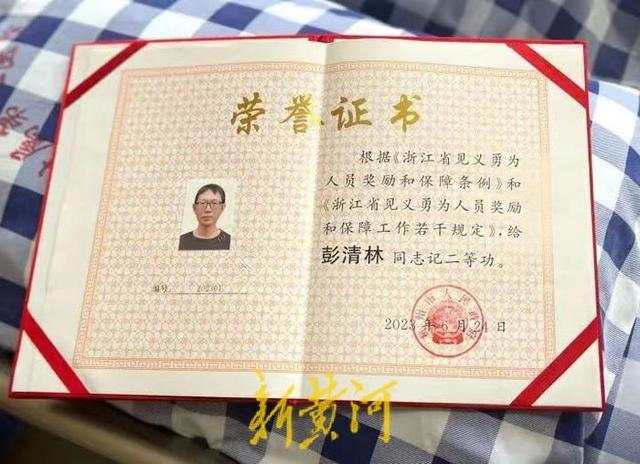 荣誉证书
根据《浙江省见义勇为
人员奖励和保障条例》和
《浙江省见义勇为人员奖励
和保障工作若干规定》，给
彭清林同志记二等功。
编号：
2023年6月24日
新黄河